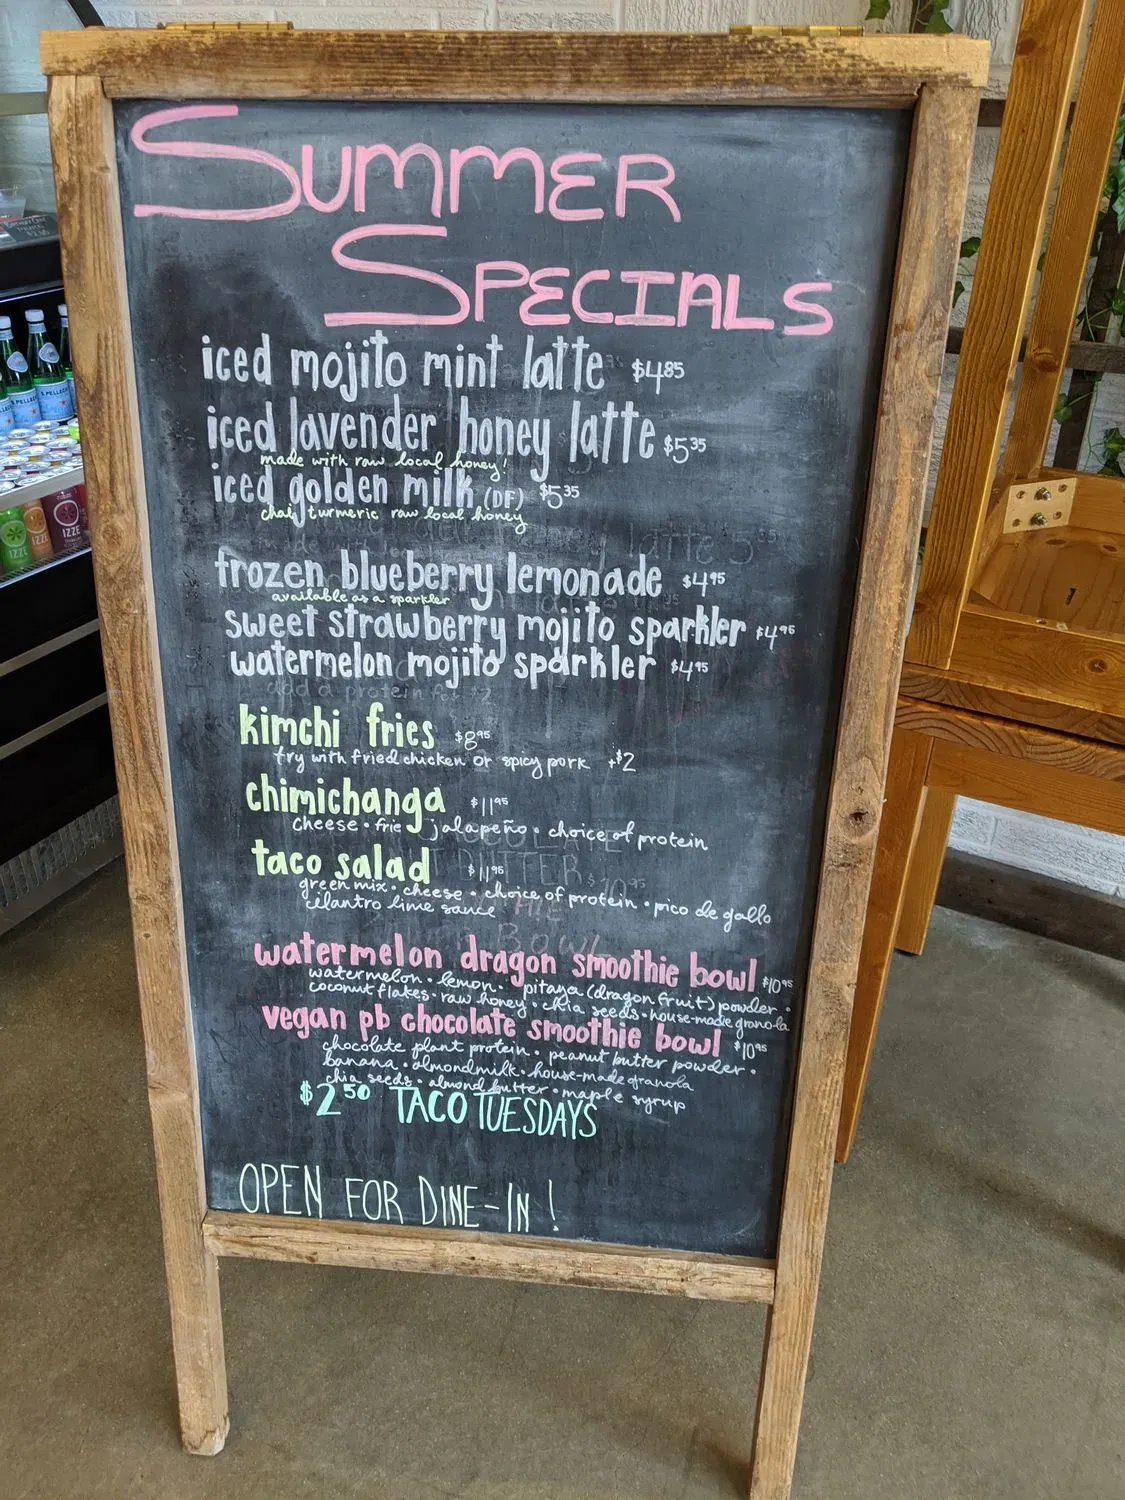 SUMMER
SPECIALS
iced mojito mint latte $4.85
iced lavender honey latte $5.35
made with raw local honey!
iced golden milk (DF) $5.35
chai, turmeric raw local honey
frozen blueberry lemonade $4.95
available as a sparkler
sweet strawberry mojito sparkler $4.95
watermelon mojito sparkler $4.95
add a protein for $2
kimchi fries $8.95
try with fried chicken or spicy pork +$2
chimichanga $11.95
cheese • frie jalapeño • choice of protein
taco salad $11.95
green mix • cheese • choice of protein • pico de gallo
cilantro lime sauce
watermelon dragon smoothie bowl $10.95
watermelon • lemon • pitaya (dragon fruit) powder •
coconut flakes • raw honey • chia seeds • house-made granola
vegan pb chocolate smoothie bowl $10.95
chocolate plant protein • peanut butter powder •
banana • almondmilk • house-made granola
chia seeds • almond butter • maple syrup
$2.50 TACO TUESDAYS
OPEN FOR DINE-IN!
S.PELLEGRINO
IZZE
IZZE